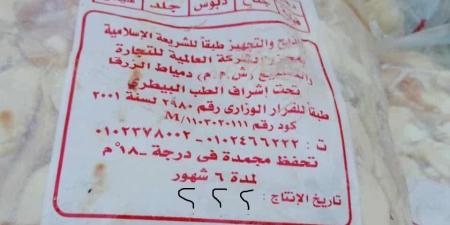 دبوس جلد
الذبح والتجهيز طبقاً للشريعة الإسلامية
الشركة العالمية للتجارة
(ش.م.م) دمياط الزرقا
تحت إشراف الطب البيطري
طبقاً للقرار الوزارى رقم ٢٩٨٠ لسنة ٢٠٠١
كود رقم M/١١٠٣٠٢٠١١١
ت : ٠١٠٢٤٦٦٢٢٢ - ٠١٠٢٣٧٨٠٠٢
تحفظ مجمدة فى درجة -١٨°م
لمدة ٦ شهور
تاريخ الإنتاج : ٢ ٢ ٢